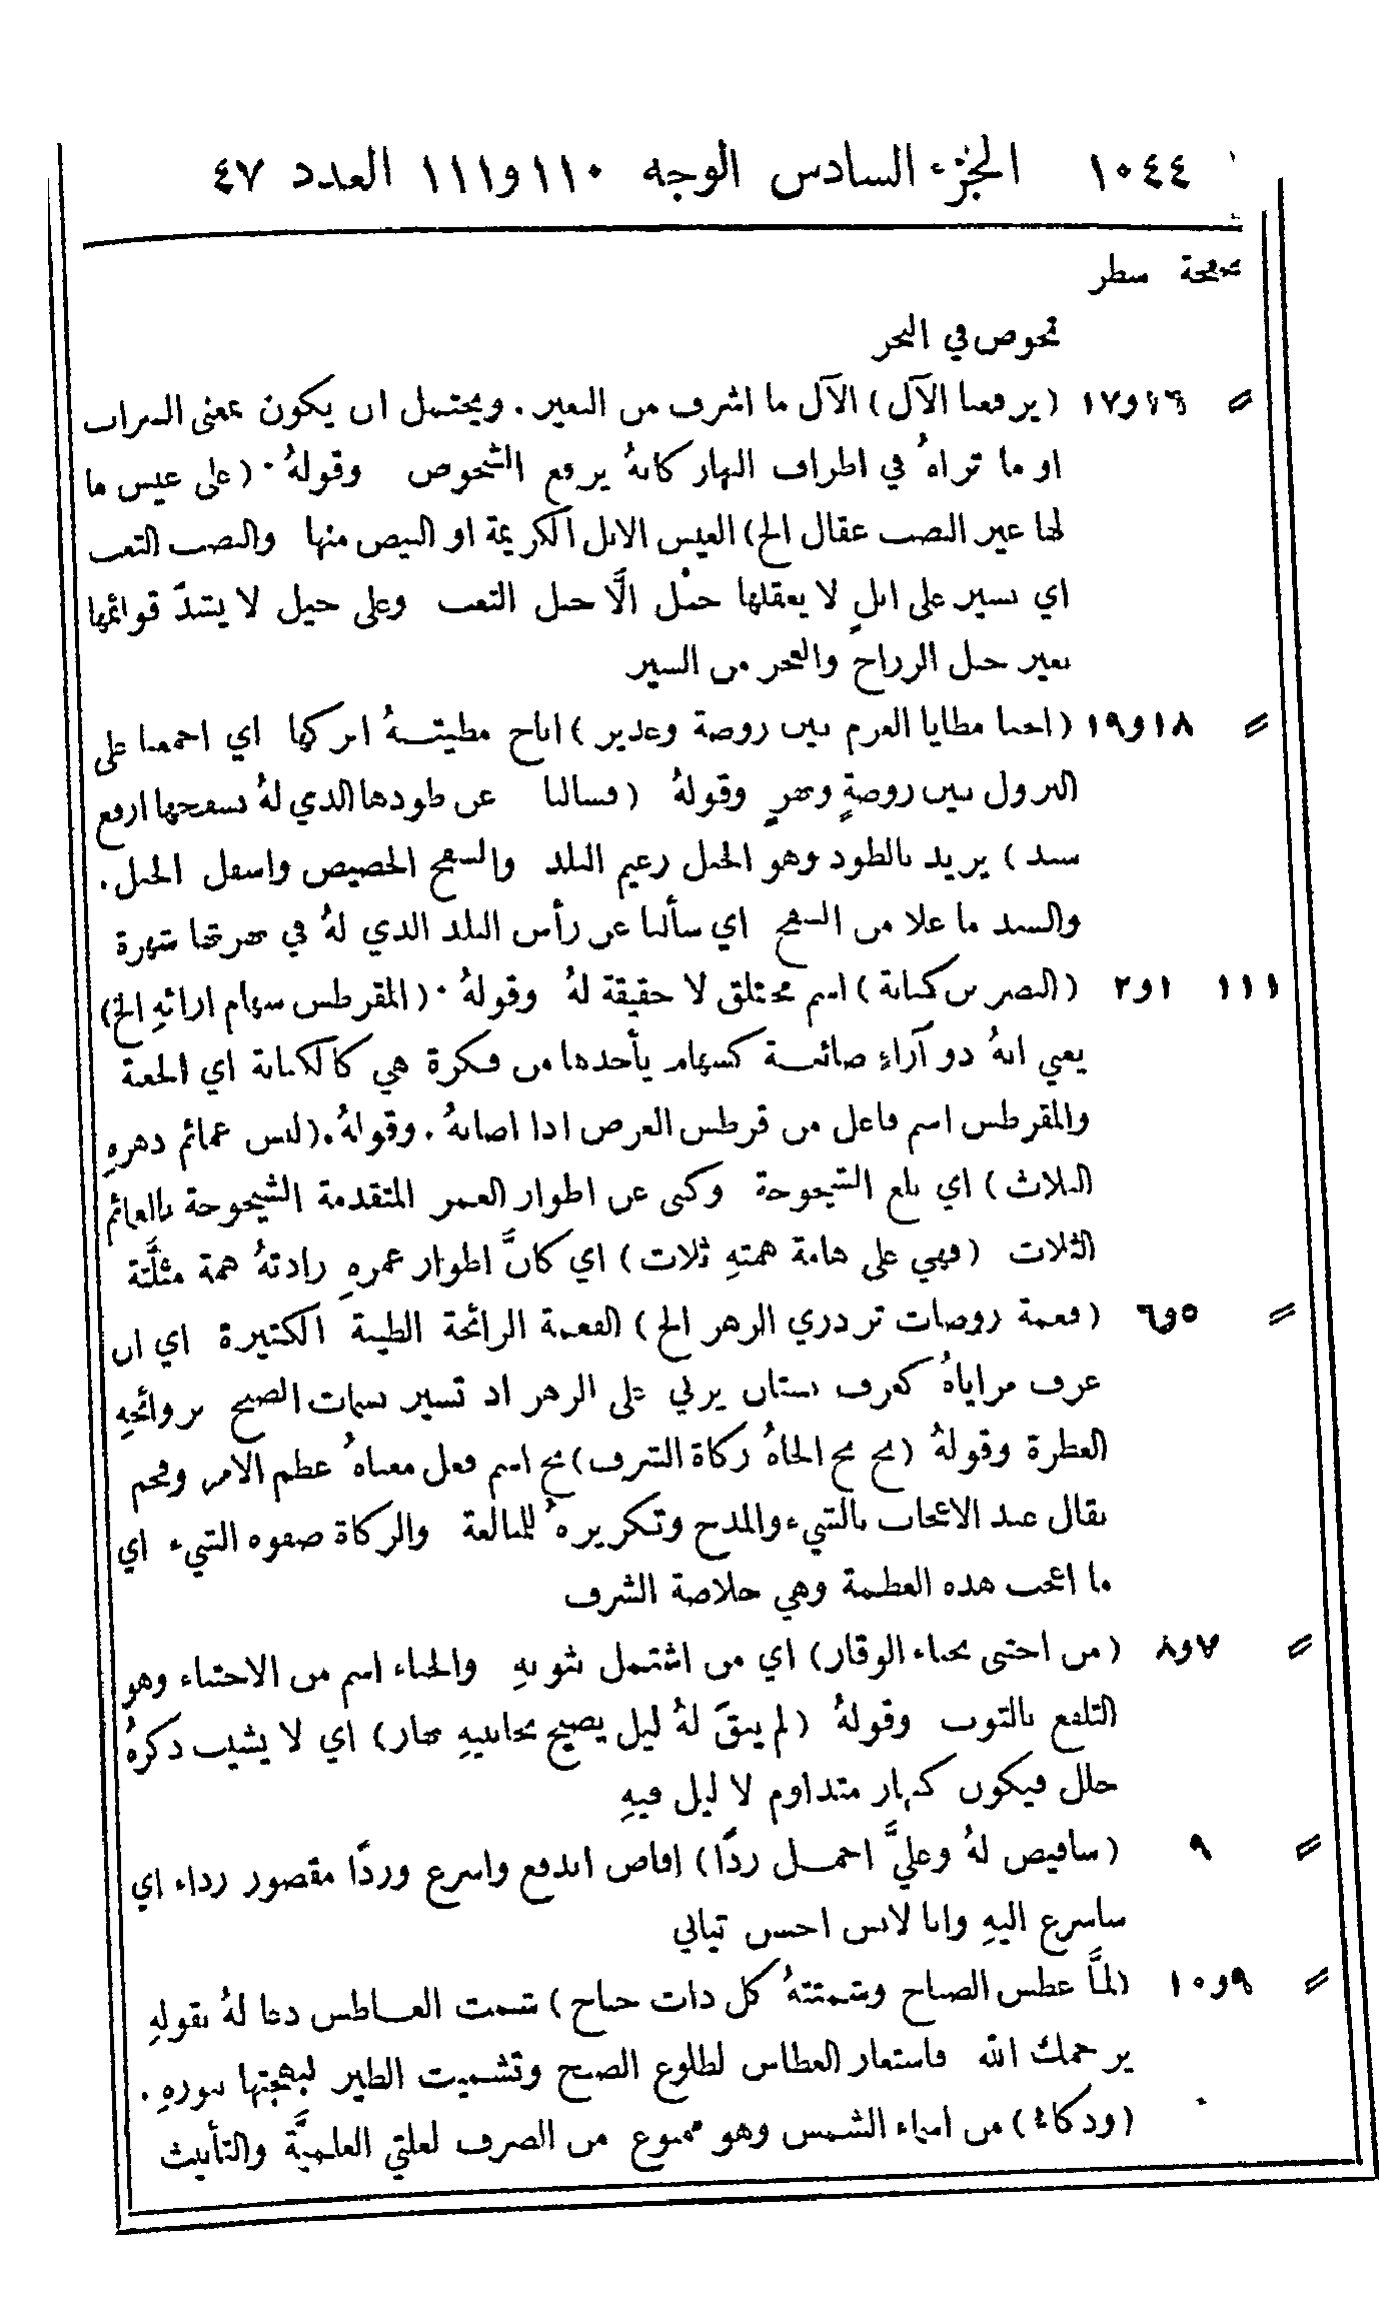 ١٠٤٤ الجزء السادس الوجه ١١٠ و١١١ العدد ٤٧
صفحة سطر
نخوض في البحر
= ١٦و١٧ (يرفعنا الآل) الآل ما اشرف من البعير. ويحتمل ان يكون بمعنى السراب
او ما تراهُ في اطراف النهار كانهُ يرفع الشخوص وقولهُ. (على عيس ما
لها غير النصب عقال الخ) العيس الابل الكريمة او البيض منها والنصب التعب
اي نسير على ابلٍ لا يعقلها حبْل الَّا حبل التعب وعلى خيل لا يشدّ قوائمها
بغير حبل الرزاح والعجز من السير
= ١٨و١٩ (انخنا مطايا العزم بين روضة وغدير) اناخ مطيتهُ ابركها اي اجمعنا على
النزول بين روضةٍ ونهرٍ وقولهُ (فسالنا عن طودها الذي لهُ بسفحها ارفع
سند) يريد بالطود وهو الجبل زعيم البلد والسفح الحضيض واسفل الجبل.
والسند ما علا من السفح اي سألنا عن رأس البلد الذي لهُ في شهرة
١١١ ١و٢ (النضر بن كنانة) اسم مختلق لا حقيقة لهُ وقولهُ. (المقرطس سهام ارائهِ الخ)
يعني انهُ ذو آراءٍ صائبة كسهام يأخذها من فكرة هي كالكنانة اي الجعبة
والمقرطس اسم فاعل من قرطس الغرض اذا اصابهُ. وقولهُ. (لبس عمائم دهرهِ
الثلاث) اي بلغ الشيخوخة وكنى عن اطوار العمر المتقدمة الشيخوخة بالعمائم
الثلاث (فهي على هامة همتهِ ثلاث) اي كانَّ اطوار عمرهِ زادتهُ همة مثلَّثة
= ٥و٦ (فغمة روضات تزدري الزهر الخ) الفغمة الرائحة الطيبة الكثيرة اي ان
عرف مزاياهُ كعرف بستان يزري على الزهر اذ تسير نسمات الصبح بروائحهِ
العطرة وقولهُ (بخ بخ الجاهُ زكاة الشرف) بخ اسم فعل معناهُ عظم الامر وفخم
يقال عند الاعجاب بالشيء والمدح وتكريرهُ للمبالغة والزكاة صفوه الشيء اي
ما اعجب هذه العظمة وهي خلاصة الشرف
= ٧و٨ (من احتبى بحباء الوقار) اي من اشتمل بثوبهِ والحباء اسم من الاحتباء وهو
التلفع بالثوب وقولهُ (لم يبقَ لهُ ليل يصيح بجانبيهِ نهار) اي لا يشيب ذكرهُ
خلل فيكون كنهار متداوم لا ليل فيهِ
= ٩ (سافيض لهُ وعليَّ اجمل ردًا) افاض اندفع واسرع وردًا مقصور رداء اي
ساسرع اليهِ وانا لابس احسن ثيابي
= ٩و١٠ (لمَّا عطس الصباح وشمتتهُ كل ذات جناح) شمت العاطس دعا لهُ بقولهِ
يرحمك الله فاستعار العطاس لطلوع الصبح وتشميت الطير لبهجتها بنورهِ.
(وذكاء) من اسماء الشمس وهو ممنوع من الصرف لعلتي العلميَّة والتأنيث